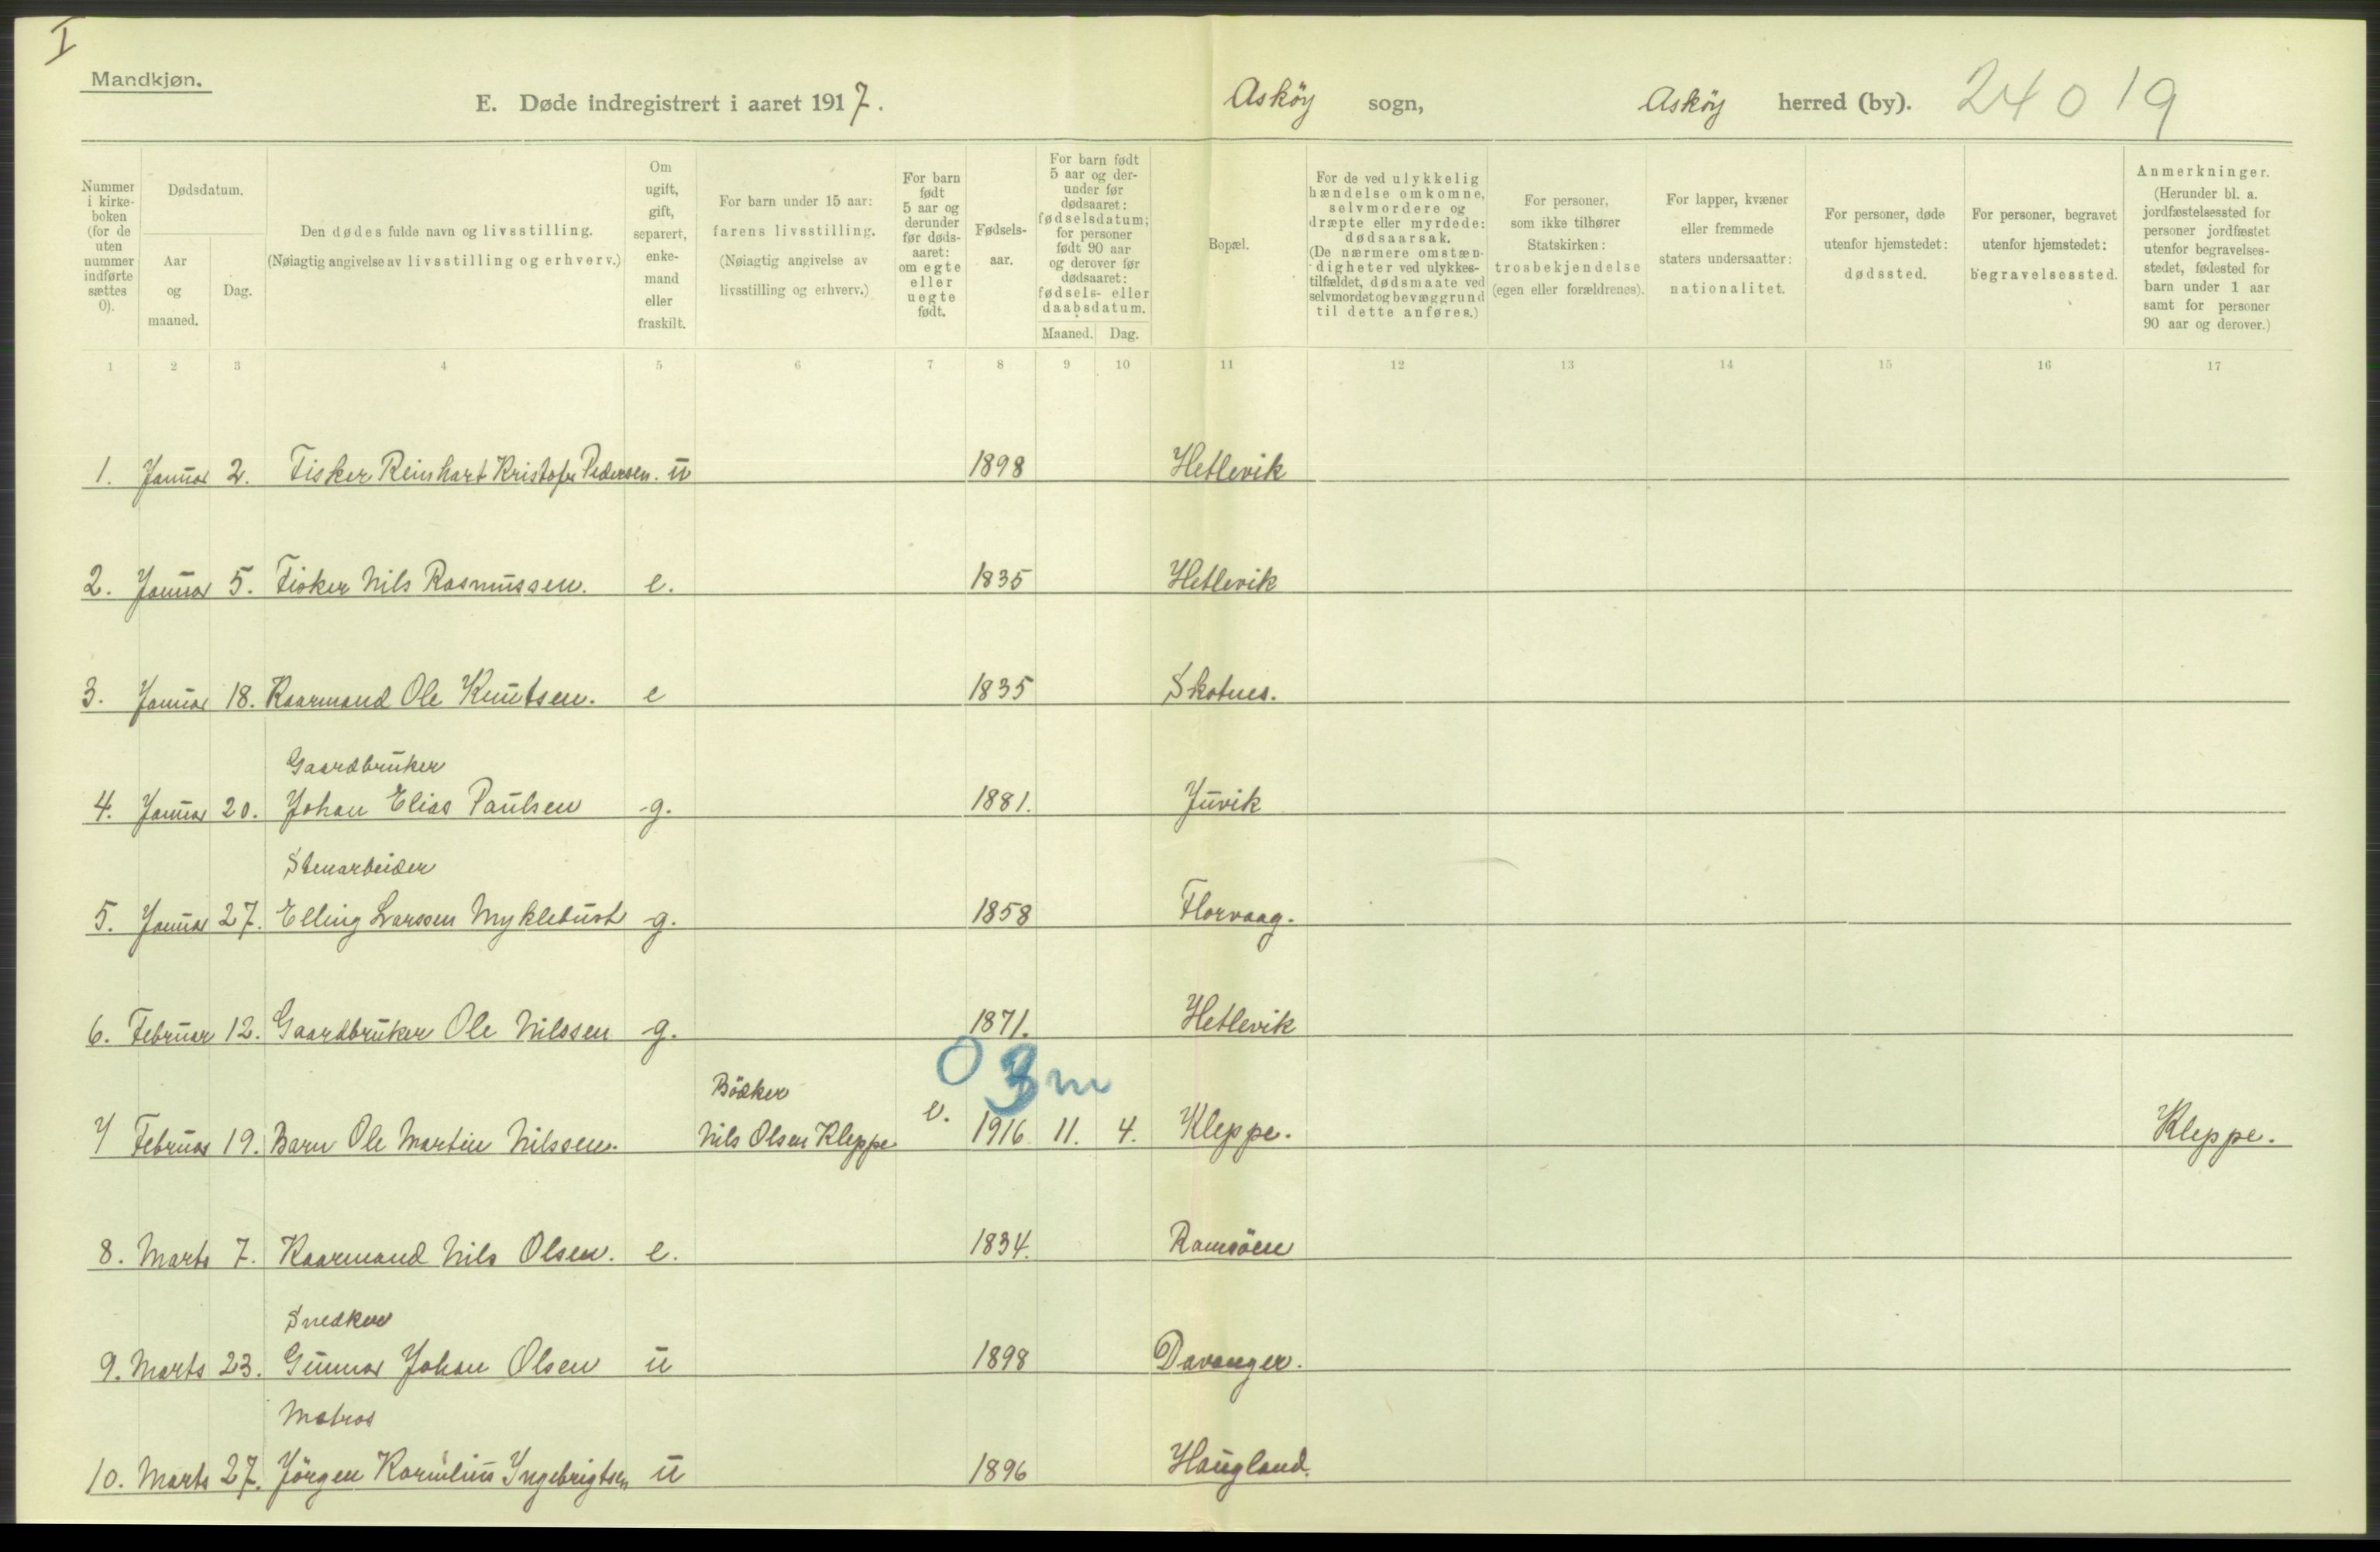 I
Mandkjøn.
E. Døde indregistrert i aaret 1917.
Asköy sogn,
Asköy herred (by).
24019
Nummer i kirke- boken (for de uten nummer indførte sættes 0).
Dødsdatum.
Aar og maaned.
Dag.
Den dødes fulde navn og livsstilling.
(Nøiagtig angivelse av livsstilling og erhverv.)
Om ugift, gift, separert, enke- mand eller fraskilt.
For barn under 15 aar: farens livsstilling.
(Nøiagtig angivelse av livsstilling og erhverv.)
For barn født 5 aar og derunder før døds- aaret: om egte eller uegte født.
Fødsels- aar.
For barn født 5 aar og der- under før dødsaaret: fødselsdatum; for personer født 90 aar og derover før dødsaaret: fødsels- eller daabsdatum.
Maaned. Dag.
Bopæl.
For de ved ulykkelig hændelse omkomne, selvmordere og dræpte eller myrdede: dødsaarsak.
(De nærmere omstæn- digheter ved ulykkes- tilfældet, dødsmaate ved selvmordet og bevæggrund til dette anføres.)
For personer, som ikke tilhører Statskirken: trosbekjendelse (egen eller forældrenes).
For lapper, kvæner eller fremmede staters undersaatter: nationalitet.
For personer, døde utenfor hjemstedet: dødssted.
For personer, begravet utenfor hjemstedet: begravelsessted.
Anmerkninger.
(Herunder bl. a. jordfæstelsessted for personer jordfæstet utenfor begravelses- stedet, fødested for barn under 1 aar samt for personer 90 aar og derover.)
1 2 3 4 5 6 7 8 9 10 11 12 13 14 15 16 17
1. Januar 2. Fisker Reinhart Kristofer Pedersen. u 1898 Hetlevik
2. Januar 5. Fisker Nils Rasmussen. e. 1835 Hetlevik
3. Januar 18. Kaarmand Ole Knutsen. e 1835 Skotnes.
Gaardbruker
4. Januar 20. Johan Elias Paulsen g. 1881. Juvik
Stenarbeider
5. Januar 27. Elling Larssen Myklebust g. 1858 Florvaag.
6. Februar 12. Gaardbruker Ole Nilssen g. 1871. Hetlevik
0 3 m
Bödker
7 Februar 19. Barn Ole Martin Nilssen. Nils Olsen Kleppe e. 1916 11. 4. Kleppe. Kleppe.
8. Marts 7. Kaarmand Nils Olsen. e. 1834. Ramsöen
Snedker
9. Marts 23. Gunnar Johan Olsen u 1898 Davanger.
Matros
10. Marts 27. Jörgen Kornelius Ingebrigtsen u 1896 Haugland.